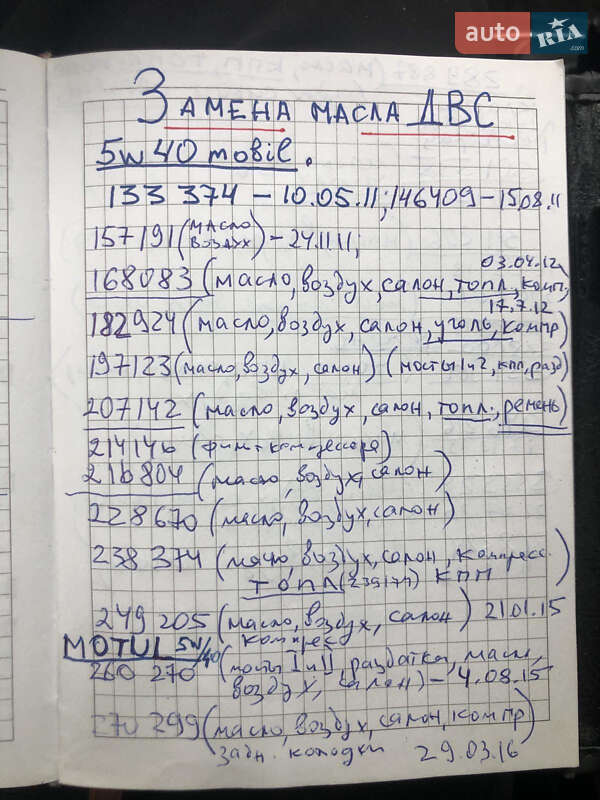 auto RIA.com
Замена масла ДВС
5w40 mobil.
133 374 – 10.05.11; 146409 – 15.08.11
157191 (масло воздух) – 24.11.11;
03.04.12
168083 (масло, воздух, салон, топл., комп.)
17.7.12
182924 (масло, воздух, салон, уголь, компр)
197123 (масло, воздух, салон) (мосты 1и2, кпп, разд)
207142 (масло, воздух, салон, топл., ремень)
214146 (компрессора)
216804 (масло, воздух, салон)
228670 (масло, воздух, салон)
238 374 (масло, воздух, салон, компресс.)
топл (239174) КПП
249 205 (масло, воздух, салон) 21.01.15
MOTUL 5W/40 компресс
260 270 (мосты I и II, раздатка, масло,
воздух, салон) – 4.08.15
270 299 (масло, воздух, салон, компр)
задн. колодки 29.03.16